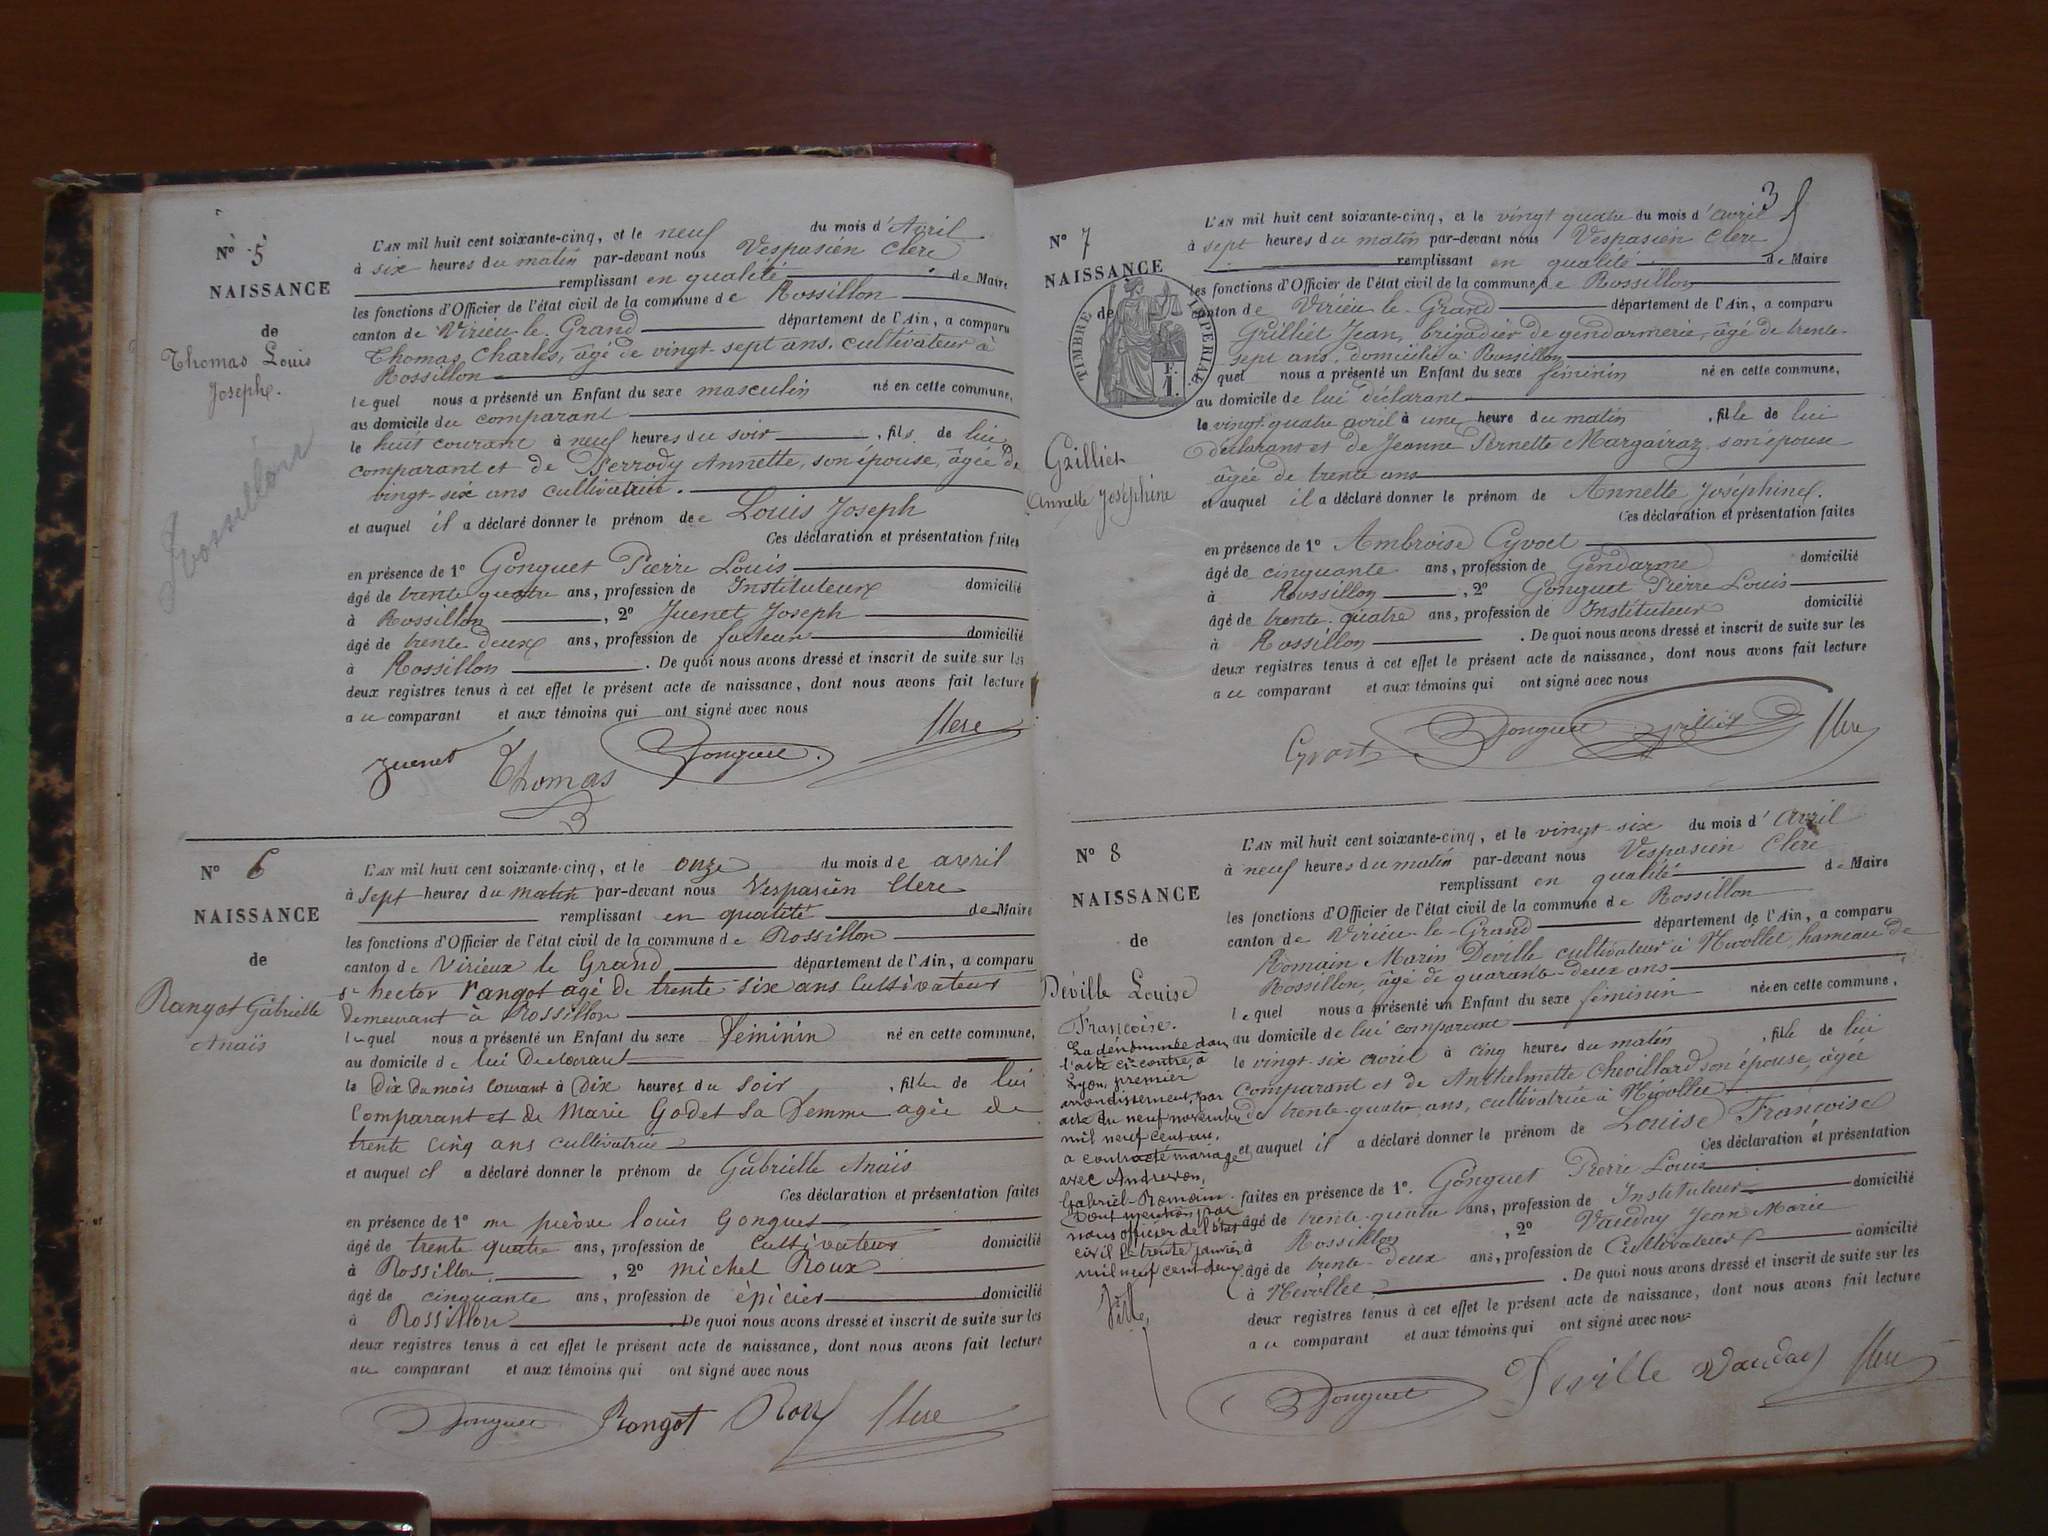 N° 5
NAISSANCE
de
Thomas Louis
Joseph.
L'AN mil huit cent soixante-cinq, et le neuf du mois d'Avril
à six heures du matin par-devant nous Vespasien Clerc
remplissant en qualité de Maire
les fonctions d'Officier de l'état civil de la commune de Rossillon
canton de Virieu-le-Grand département de l'Ain, a comparu
Thomas, Charles, âgé de vingt-sept ans, cultivateur à
Rossillon
lequel nous a présenté un Enfant du sexe masculin né en cette commune,
au domicile du comparant
le huit courant à neuf heures du soir , fils de lui
comparant et de Perrody Annette, son épouse, âgée de
vingt-six ans cultivatrice.
et auquel il a déclaré donner le prénom de Louis Joseph
Ces déclaration et présentation faites
en présence de 1° Gonguet Pierre Louis
âgé de trente quatre ans, profession de Instituteur domicilié
à Rossillon , 2° Juenet Joseph
âgé de trente deux ans, profession de facteur domicilié
à Rossillon . De quoi nous avons dressé et inscrit de suite sur les
deux registres tenus à cet effet le présent acte de naissance, dont nous avons fait lecture
au comparant et aux témoins qui ont signé avec nous
Juenet Thomas Gonguet Clerc
N° 6
NAISSANCE
de
Rangot Gabrielle
Anaïs
L'AN mil huit cent soixante-cinq, et le onze du mois de avril
à sept heures du matin par-devant nous Vespasien Clerc
remplissant en qualité de Maire
les fonctions d'Officier de l'état civil de la commune de Rossillon
canton de Virieux le Grand département de l'Ain, a comparu
sr hector rangot agé de trente six ans Cultivateur
demeurant a Rossillon
lequel nous a présenté un Enfant du sexe Feminin né en cette commune,
au domicile de lui Declarant
le Dix du mois courant à Dix heures du soir , fille de lui
Comparant et de Marie Godet Sa Femme agée de
trente cinq ans cultivatrice
et auquel il a déclaré donner le prénom de Gabrielle Anaïs
Ces déclaration et présentation faites
en présence de 1° mr pierre louis Gonguet
âgé de trente quatre ans, profession de Cultivateur domicilié
à Rossillon , 2° michel Roux
âgé de cinquante ans, profession de épicier domicilié
à Rossillon . De quoi nous avons dressé et inscrit de suite sur les
deux registres tenus à cet effet le présent acte de naissance, dont nous avons fait lecture
au comparant et aux témoins qui ont signé avec nous
Gonguet Rangot Roux Clerc
Rossillon
3
N° 7
NAISSANCE
de
TIMBRE IMPERIAL
F.
1.
Grilliet
Annette Joséphine
L'AN mil huit cent soixante-cinq, et le vingt quatre du mois d'avril
à sept heures du matin par-devant nous Vespasien Clerc
remplissant en qualité de Maire
les fonctions d'Officier de l'état civil de la commune de Rossillon
canton de Virieu-le-Grand département de l'Ain, a comparu
Grilliet Jean, brigadier de gendarmerie, âgé de trente-
sept ans, domicilié à Rossillon
quel nous a présenté un Enfant du sexe féminin né en cette commune,
au domicile de lui déclarant
le vingt-quatre avril à une heure du matin , fille de lui
déclarant et de Jeanne Pernette Margairaz son épouse
âgée de trente ans
et auquel il a déclaré donner le prénom de Annette Joséphine.
Ces déclaration et présentation faites
en présence de 1° Ambroise Cyvoct
âgé de cinquante ans, profession de Gendarme domicilié
à Rossillon , 2° Gonguet Pierre Louis
âgé de trente-quatre ans, profession de Instituteur domicilié
à Rossillon . De quoi nous avons dressé et inscrit de suite sur les
deux registres tenus à cet effet le présent acte de naissance, dont nous avons fait lecture
au comparant et aux témoins qui ont signé avec nous
Cyvoct Gonguet Grilliet Clerc
N° 8
NAISSANCE
de
Déville Louise
Françoise.
La dénommée dans
l'acte ci-contre, à
Lyon, premier
arrondissement, par
acte du neuf novembre
mil neuf cent un,
a contracté mariage
avec Andrevon,
Gabriel-Romain.
Dont mention par
nous officier de l'état
civil le trente janvier
mil neuf cent deux.
L'AN mil huit cent soixante-cinq, et le vingt-six du mois d'avril
à neuf heures du matin par-devant nous Vespasien Clerc
remplissant en qualité de Maire
les fonctions d'Officier de l'état civil de la commune de Rossillon
canton de Virieu-le-Grand département de l'Ain, a comparu
Romain Marin Déville cultivateur à Hévollet, hameau de
Rossillon, âgé de quarante-deux ans
lequel nous a présenté un Enfant du sexe féminin née en cette commune,
au domicile de lui comparant
le vingt-six avril à cinq heures du matin , fille de lui
Comparant et de Anthelmette Chevillard son épouse, âgée
de trente-quatre ans, cultivatrice à Hévollet
et auquel il a déclaré donner le prénom de Louise Françoise
Ces déclaration et présentation
faites en présence de 1°. Gonguet Pierre Louis
âgé de trente-quatre ans, profession de Instituteur domicilié
à Rossillon , 2° Vauday Jean Marie
âgé de trente-deux ans, profession de Cultivateur domicilié
à Hévollet . De quoi nous avons dressé et inscrit de suite sur les
deux registres tenus à cet effet le présent acte de naissance, dont nous avons fait lecture
au comparant et aux témoins qui ont signé avec nous
Gonguet Deville Vauday Clerc